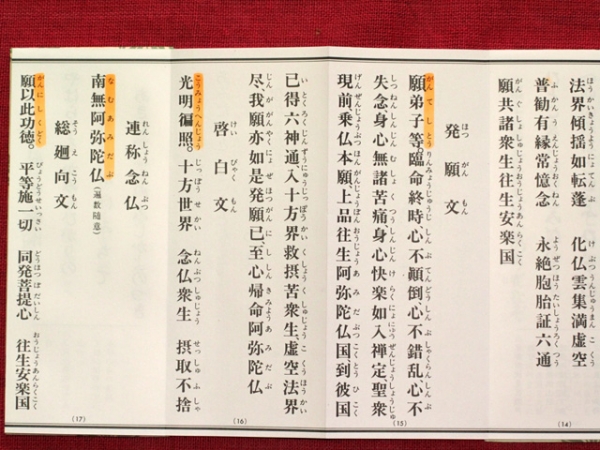 法界傾揺如転蓬　化仏雲集満虚空
普勧有縁常憶念　永絶胞胎証六通
願共諸衆生往生安楽国
(14)
発願文
願弟子等、臨命終時心不顛倒心不錯乱心不
失念身心無諸苦痛、身心快楽如入禅定聖衆
現前乗仏本願上品往生阿弥陀仏国、到彼国
(15)
已得六神通入十方界救摂苦衆生、虚空法界
尽、我願亦如是発願已、至心帰命阿弥陀仏
啓白文
(16)
光明徧照。十方世界　念仏衆生　摂取不捨
連称念仏
南無阿弥陀仏(遍数随意)
総廻向文
願以此功徳。平等施一切　同発菩提心　往生安楽国
(17)